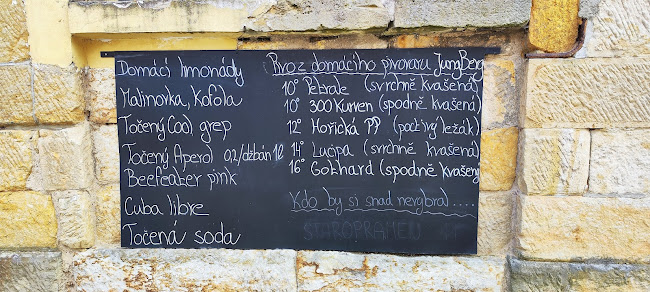 Domácí limonády
Malinovka, Kofola
Točený Cool grep
Točený Aperol 0,2/džbán 1l
Beefeater pink
Cuba libre
Točená soda
Pivo z domácího pivovaru JungBerg
10° Petrale (svrchně kvašená)
10° 300 Kurven (spodně kvašená)
12° Hořická (poctivý ležák)
14° Lucipa (svrchně kvašená)
16° Gotthard (spodně kvašená
Kdo by si snad nevybral....
STAROPRAMEN